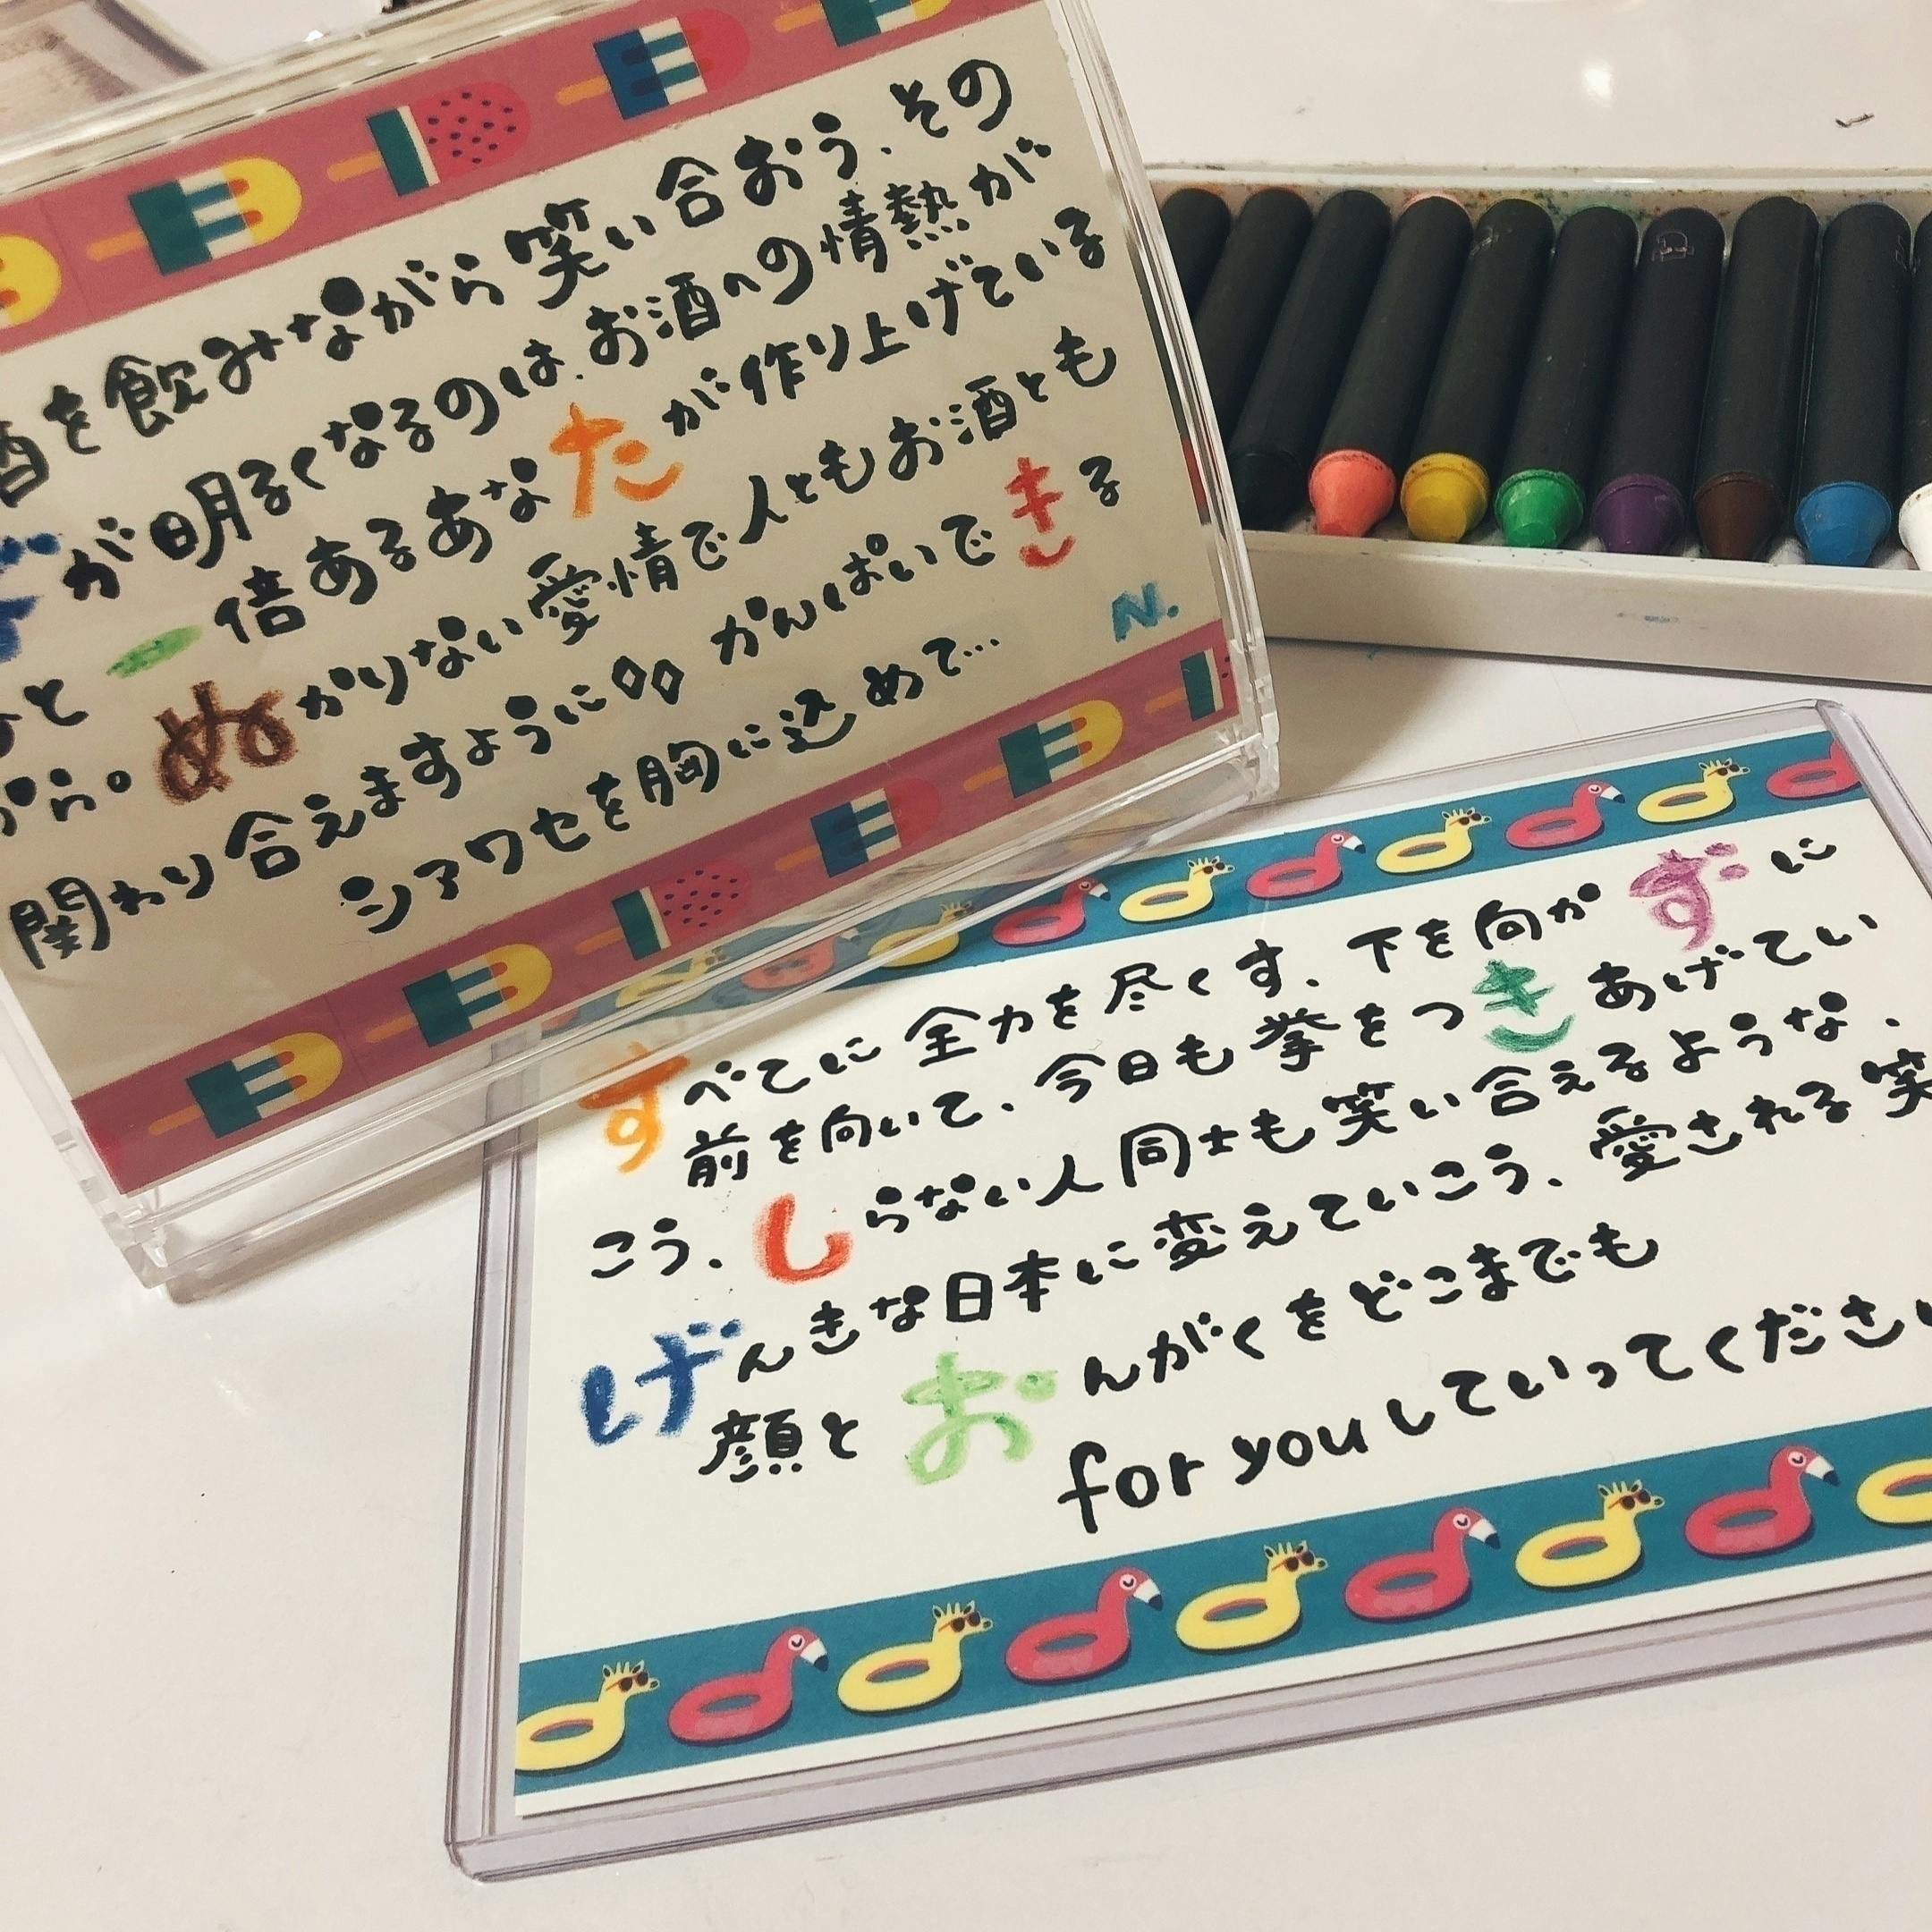 酒を飲みながら笑い合おう、その
が明るくなるのは、お酒への情熱が
と一倍あるあなたが作り上げている
から。ぬかりない愛情で人ともお酒とも
関わり合えますように◊◊ かんぱいできる
シアワセを胸に込めて…
N.
すべてに全力を尽くす、下を向かずに
前を向いて、今日も拳をつきあげてい
こう、しらない人同士も笑い合えるような、
げんきな日本に変えていこう、愛される笑
顔とおんがくをどこまでも
for you していってください